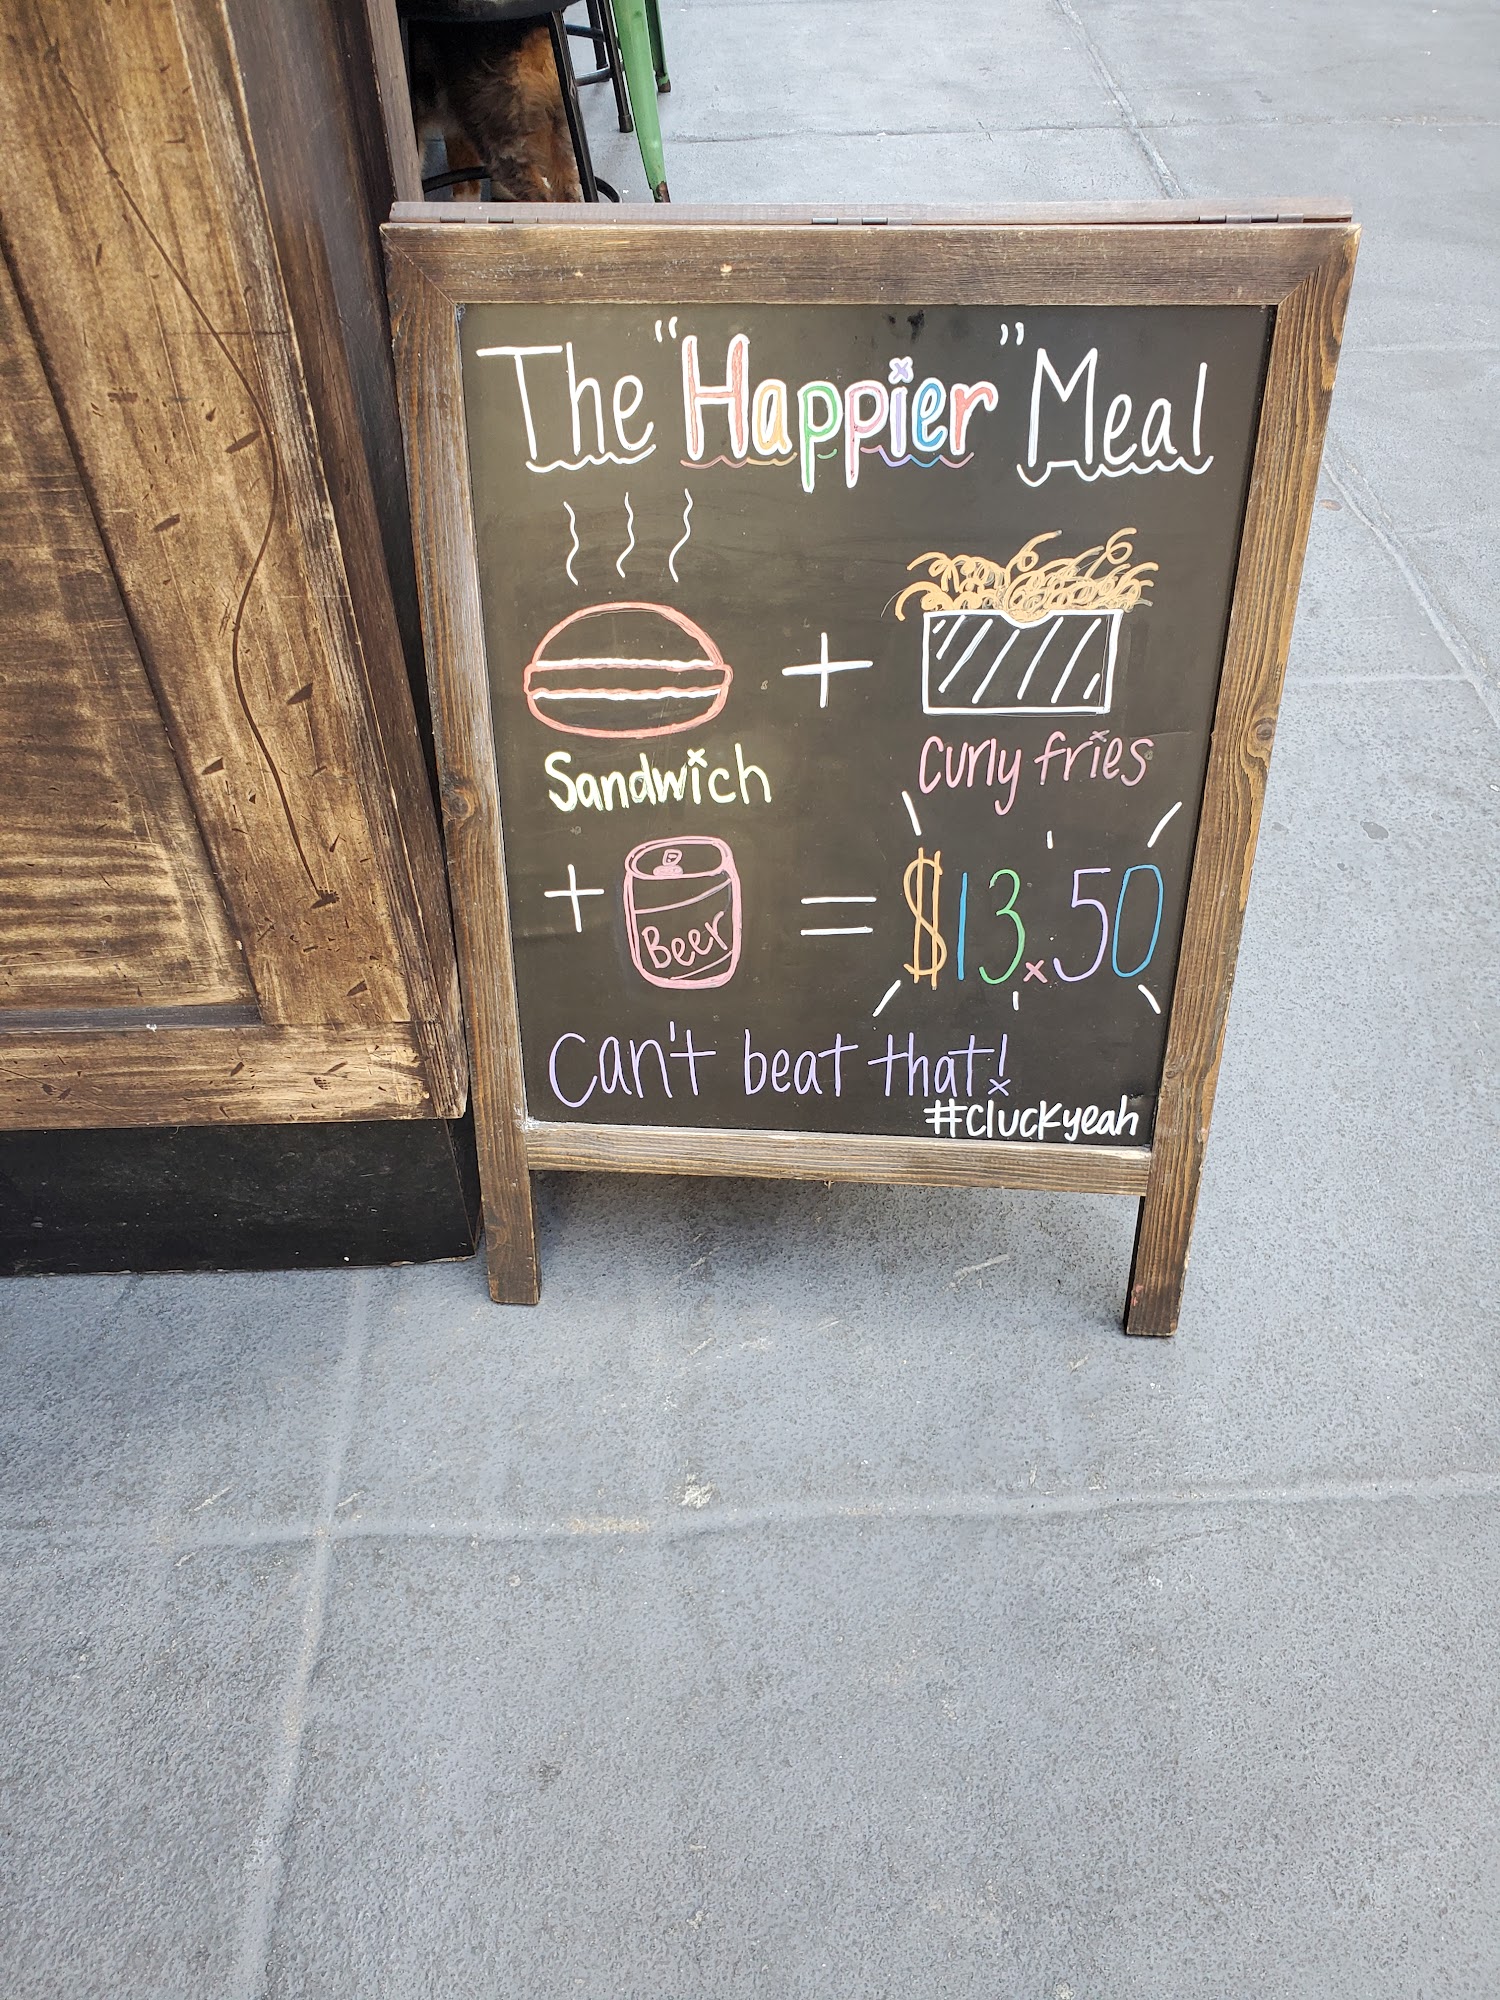 The "Happier" Meal
+
Sandwich curly fries
+ Beer = $13.50
Can't beat that!
#cluckyeah